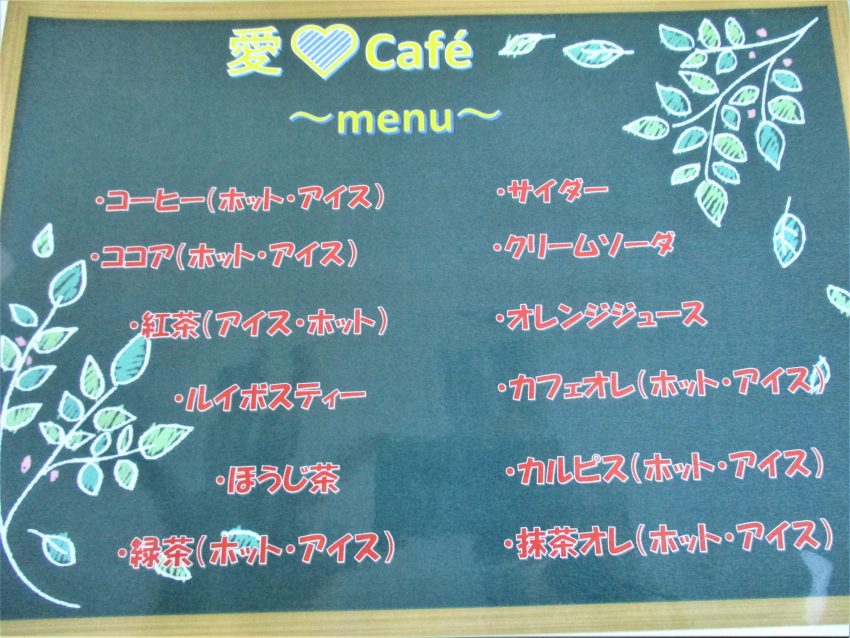 愛♡Café
～menu～
・コーヒー（ホット・アイス）
・ココア（ホット・アイス）
・紅茶（アイス・ホット）
・ルイボスティー
・ほうじ茶
・緑茶（ホット・アイス）
・サイダー
・クリームソーダ
・オレンジジュース
・カフェオレ（ホット・アイス）
・カルピス（ホット・アイス）
・抹茶オレ（ホット・アイス）